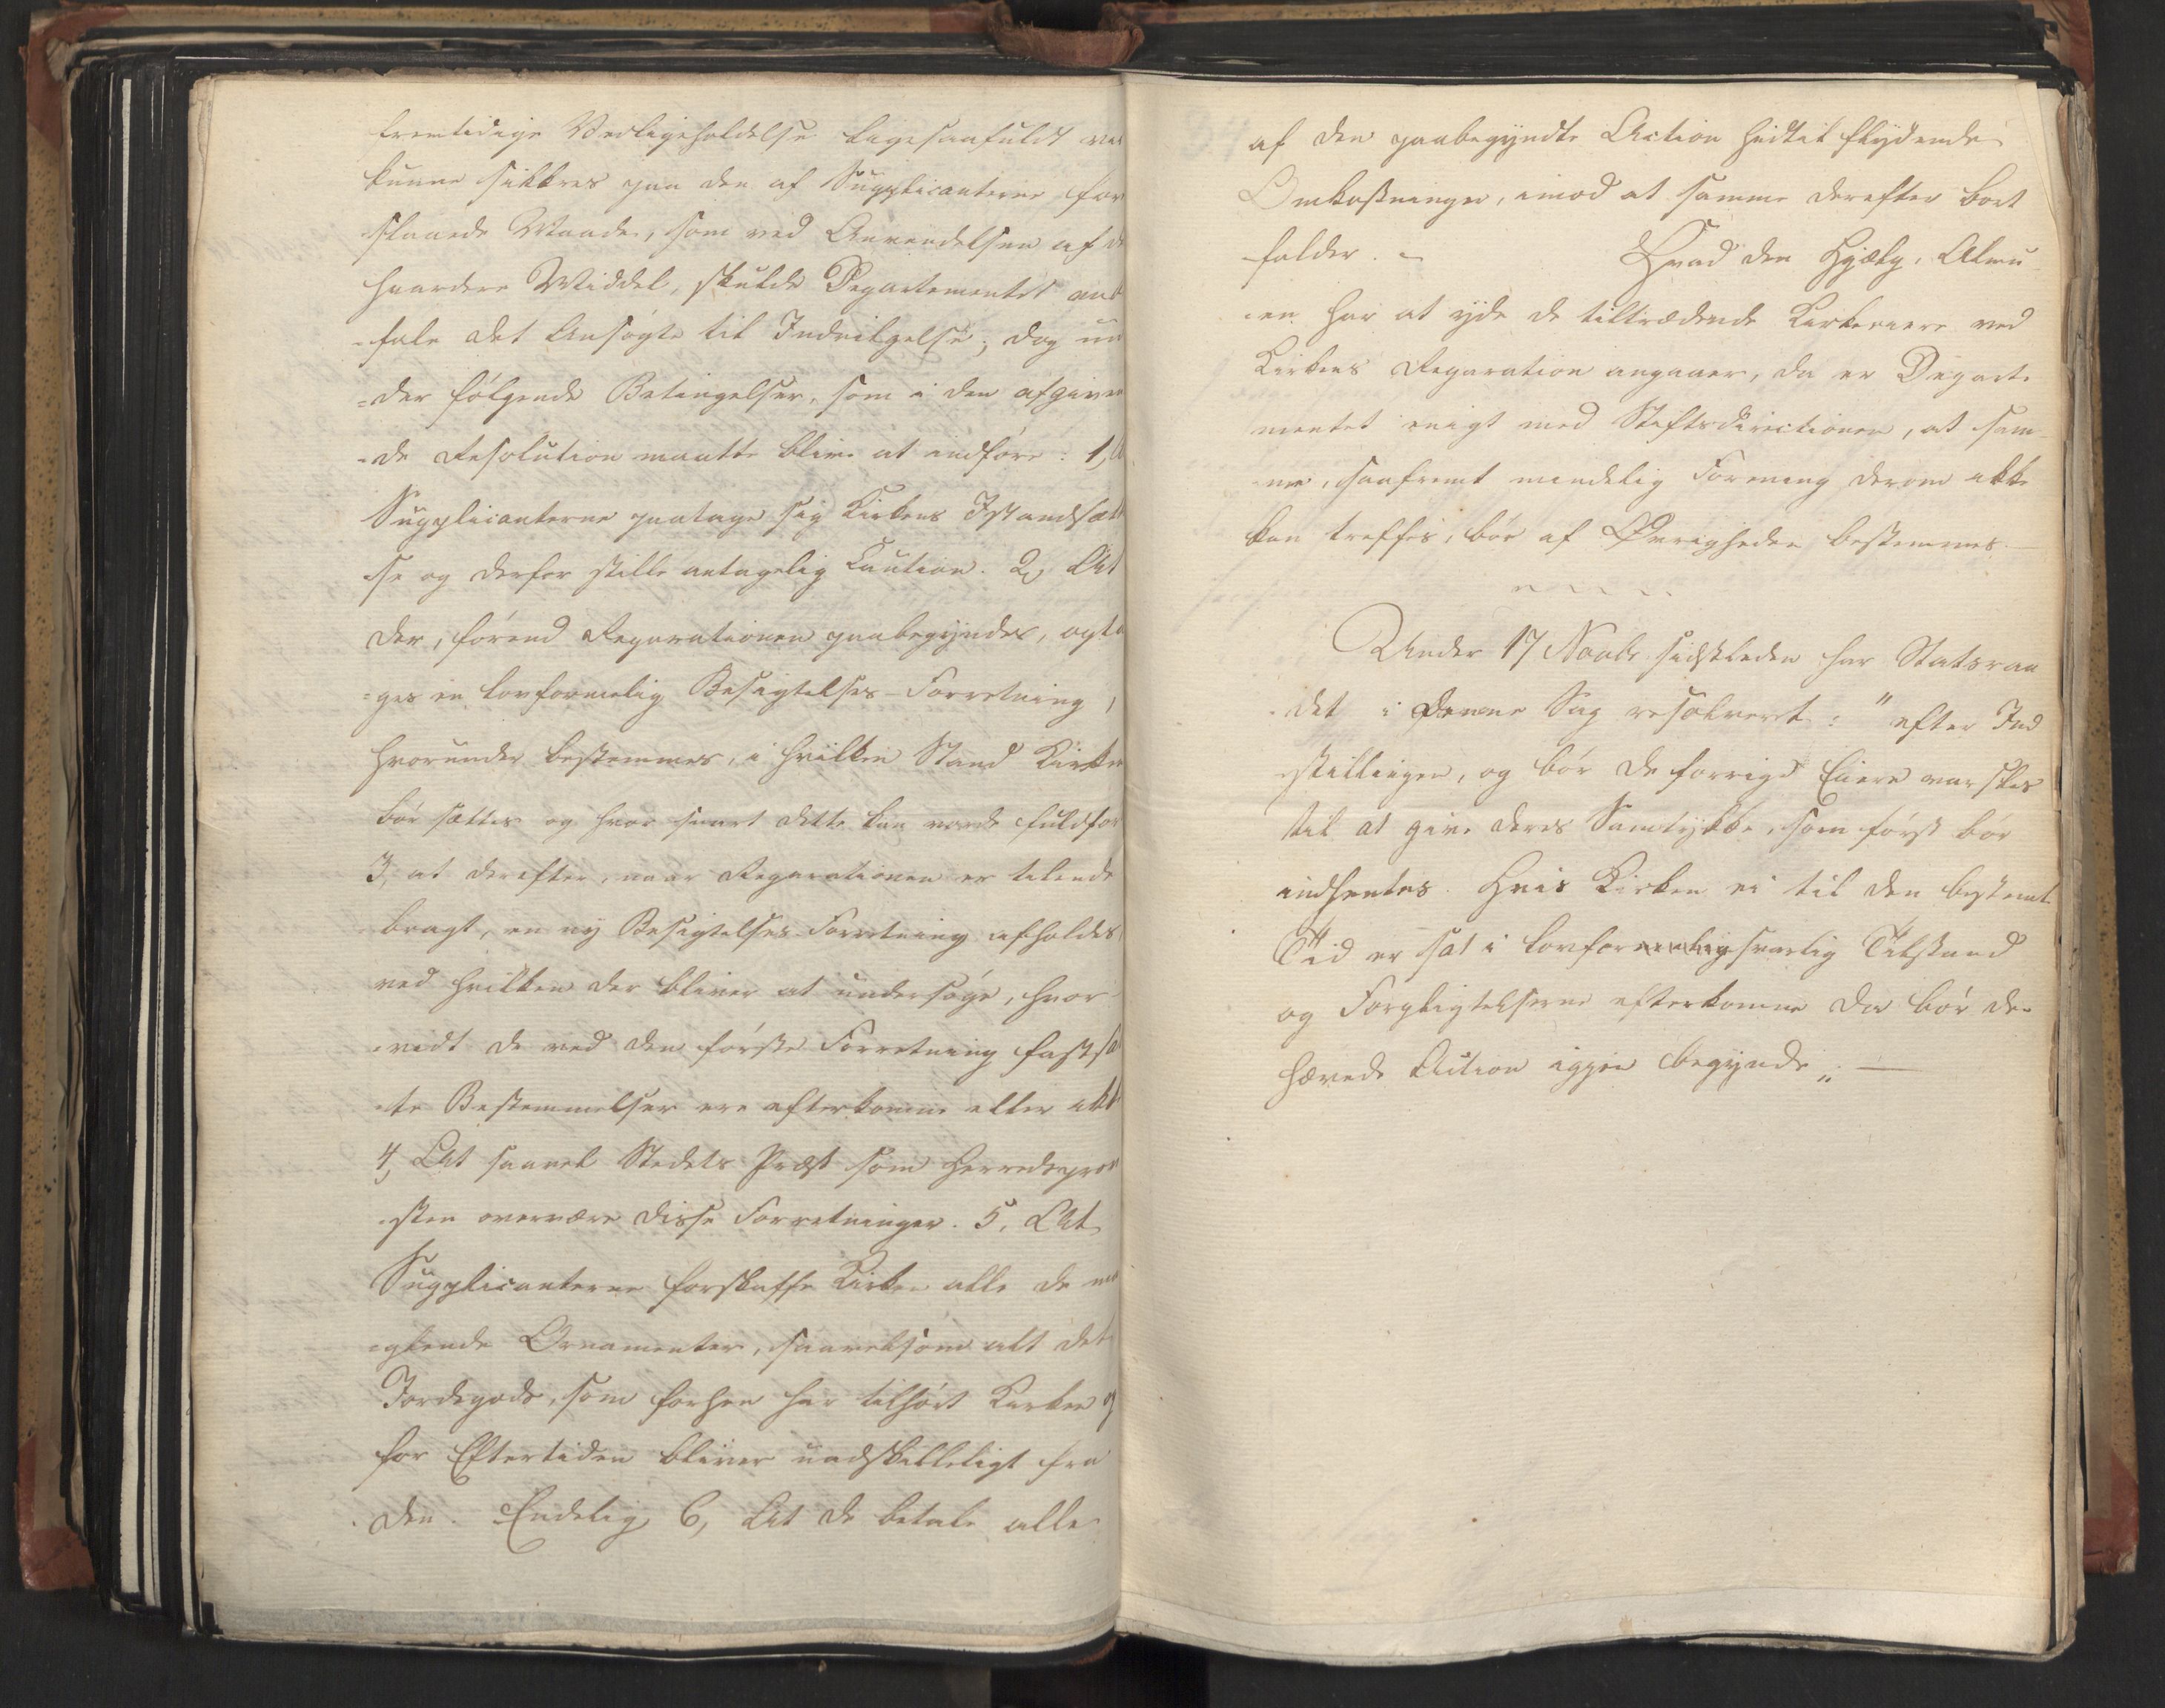 fremtidige Vedligeholdelse ligesaafuldt vel
kunne sikkres paa den af Supplicanterne for
slaaede Maade, som ved Anvendelsen af de
haardere Middel, skulde Departementet anb
-fale det Ansøgte til Indvilgelse; dog un
=der følgende Betingelser, som i den afgiven
-de Resolution maatte blive at indføre: 1, A
Supplicanterne paatage sig Kirkens Istandsætt
se og derfor stille antagelig Caution. 2, At
der, førend Reparationen paabegyndes, opta
=ges en lovformelig Besigtelses-Forretning,
hvorunder bestemmes, i hvilken Stand Kirken
bør sættes og hvor snart dette kan vorde fuldfør
3, at derefter, naar Reparationen er tilende
bragt, en ny Besigtelses-Forretning afholdes
ved hvilken der bliver at undersøge, hvor-
-vidt de ved den første Forretning fastsa
-te Bestemmelser ere efterkomne eller ikk
4, At saavel Stedets Præst som Herredsprov
-sten overvære disse Forretninger. 5, At
Supplicanterne forskaffe Kirken alle de ma
-glende Ornamenter, saavelsom alt det
Jordegods, som forhen har tilhørt Kirken og
for Eftertiden bliver uadskilleligt fra
den. Endelig 6, At de betale alle
af den paabegyndte Action hidtil flydende
Omkostninger, imod at samme derefter bort
falder. - Hvad den Hjælp, Almu-
-en har at yde de tiltrædende Kirkeeiere ved
Kirkens Reparation angaaer, da er Departe
mentet enigt med Stiftsdirectionen, at sam-
-me, saafremt mindelig Forening derom ikke
kan treffes, bør af Øvrigheden bestemmes. -
Under 17 Novbr sidstleden har Statsraa
-det i denne Sag resolveret: "efter Ind
-stillingen, og bør de forrige Eiere varsles
til at give deres Samtykke, som først bør
indhentes. Hvis Kirken ei til den bestemt
Tid er sat i lovforsvarlig Tilstand
og Forpligtelserne efterkomne da bør den
hævede Action igjen begynde". -